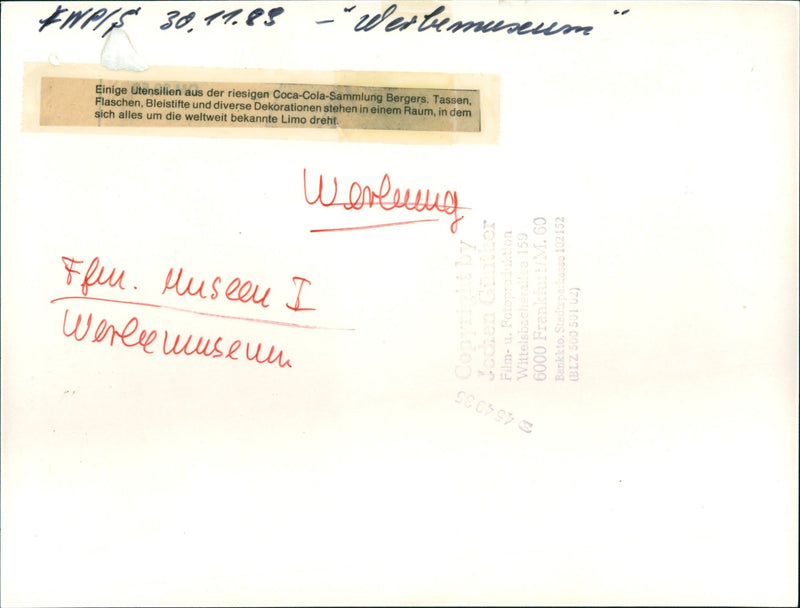 FWP/S 30.11.83 – "Werbemuseum"
Einige Utensilien aus der riesigen Coca-Cola-Sammlung Bergers. Tassen,
Flaschen, Bleistifte und diverse Dekorationen stehen in einem Raum, in dem
sich alles um die weltweit bekannte Limo dreht.
Werbung
Ffm. Museen I
Werbemuseum
Copyright by
Jochen Günther
Film- u. Fotoproduktion
Wittelsbacherallee 159
6000 Frankfurt/M. 60
Bankkto. Stadtsparkasse 102152
(BLZ 500 501 02)
☎ 454985